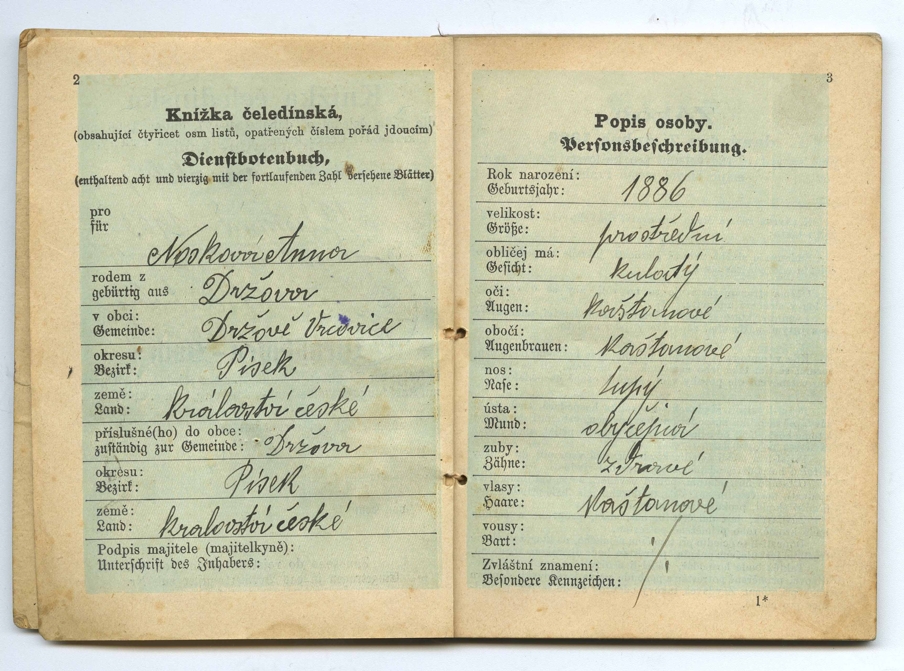 2
Knížka čeledínská,
(obsahující čtyřicet osm listů, opatřených číslem pořád jdoucím)
Dienstbotenbuch,
(enthaltend acht und vierzig mit der fortlaufenden Zahl versehene Blätter)
pro
für
Nosková Anna
rodem z
gebürtig aus
Držova
v obci:
Gemeinde:
Držově Vrcovice
okresu:
Bezirk:
Písek
země:
Land:
Království české
příslušné(ho) do obce:
zuständig zur Gemeinde:
Držova
okresu:
Bezirk:
Písek
země:
Land:
Království české
Podpis majitele (majitelkyně):
Unterschrift des Inhabers:
3
Popis osoby.
Personsbeschreibung.
Rok narození:
Geburtsjahr:
1886
velikost:
Größe:
prostřední
obličej má:
Gesicht:
kulatý
oči:
Augen:
Kaštanové
obočí:
Augenbrauen:
Kaštanové
nos:
Nase:
tupý
ústa:
Mund:
obyčejná
zuby:
Zähne:
zdravé
vlasy:
Haare:
Kaštanové
vousy:
Bart:
Zvláštní znamení:
Besondere Kennzeichen:
1*